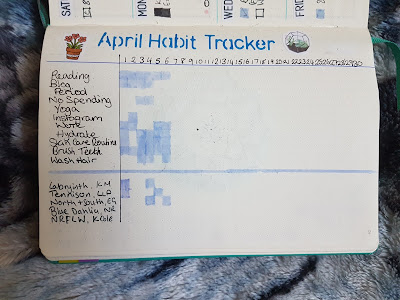 SAT
MON
WED
FRI
April Habit Tracker
1 2 3 4 5 6 7 8 9 10 11 12 13 14 15 16 17 18 19 20 21 22 23 24 25 26 27 28 29 30
Reading
Blog
Period
No Spending
Yoga
Instagram
Work
Hydrate
Skin Care Routine
Brush Teeth
Wash Hair
Labyrinth, KM
Tennison,
North + South, EG
Blue Dahlia, NR
NRFLW,